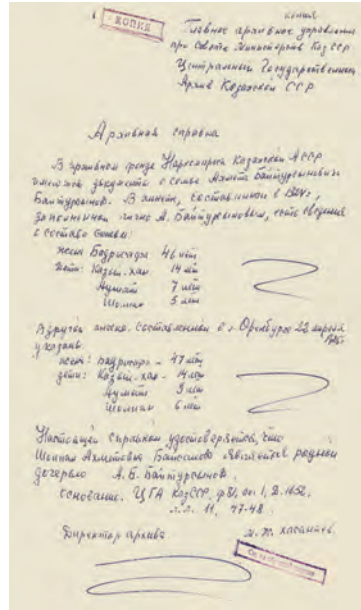 копия
КОПИЯ
Главное архивное управление
при Совете Министров Каз ССР
Центральный Государственный
Архив Казахской ССР
Архивная справка
В архивном фонде Наркомпроса Казахской АССР
имеются документы о семье Ахмета Байтурсыновича
Байтурсынова. В анкете, составленной в 1924г,
заполненной лично А. Байтурсыновым, есть сведения
о составе семьи:
жена Бадрисафа 46 лет
дети: Казы-хан 14 лет
Аумат 7 лет
Шолпан 5 лет
В другой анкете составленной в г. Оренбурге 22 апреля
указаны
жена: Бадрисафа - 47 лет
дети: Казы-хан - 14 лет
Аумат 9 лет
Шолпан 6 лет
Настоящей справкой удостоверяется, что
Шолпан Ахметовна является родной
дочерью А. Б. Байтурсынова.
основание: ЦГА КазССР, ф 81, оп 1, Д. 1652,
л.л. 11, 47-48.
Директор архива М. Ж. Хасанаев